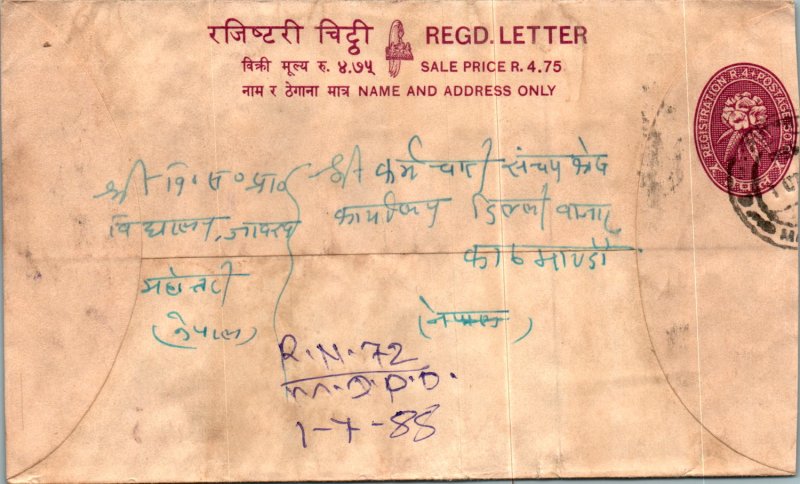 रजिष्टरी चिट्ठी REGD. LETTER
बिक्री मूल्य रु. ४.७५ SALE PRICE R. 4.75
नाम र ठेगाना मात्र NAME AND ADDRESS ONLY
REGISTRATION R. 4 + POSTAGE
श्री नि॰ मा॰ प्रा॰
विद्यालय,
महोत्तरी
(नेपाल)
श्री कर्मचारी संचय कोष
कार्यालय डिल्ली बजार
काठमाण्डौ
(नेपाल)
R.N. 72
M.D.P.O.
1-7-88